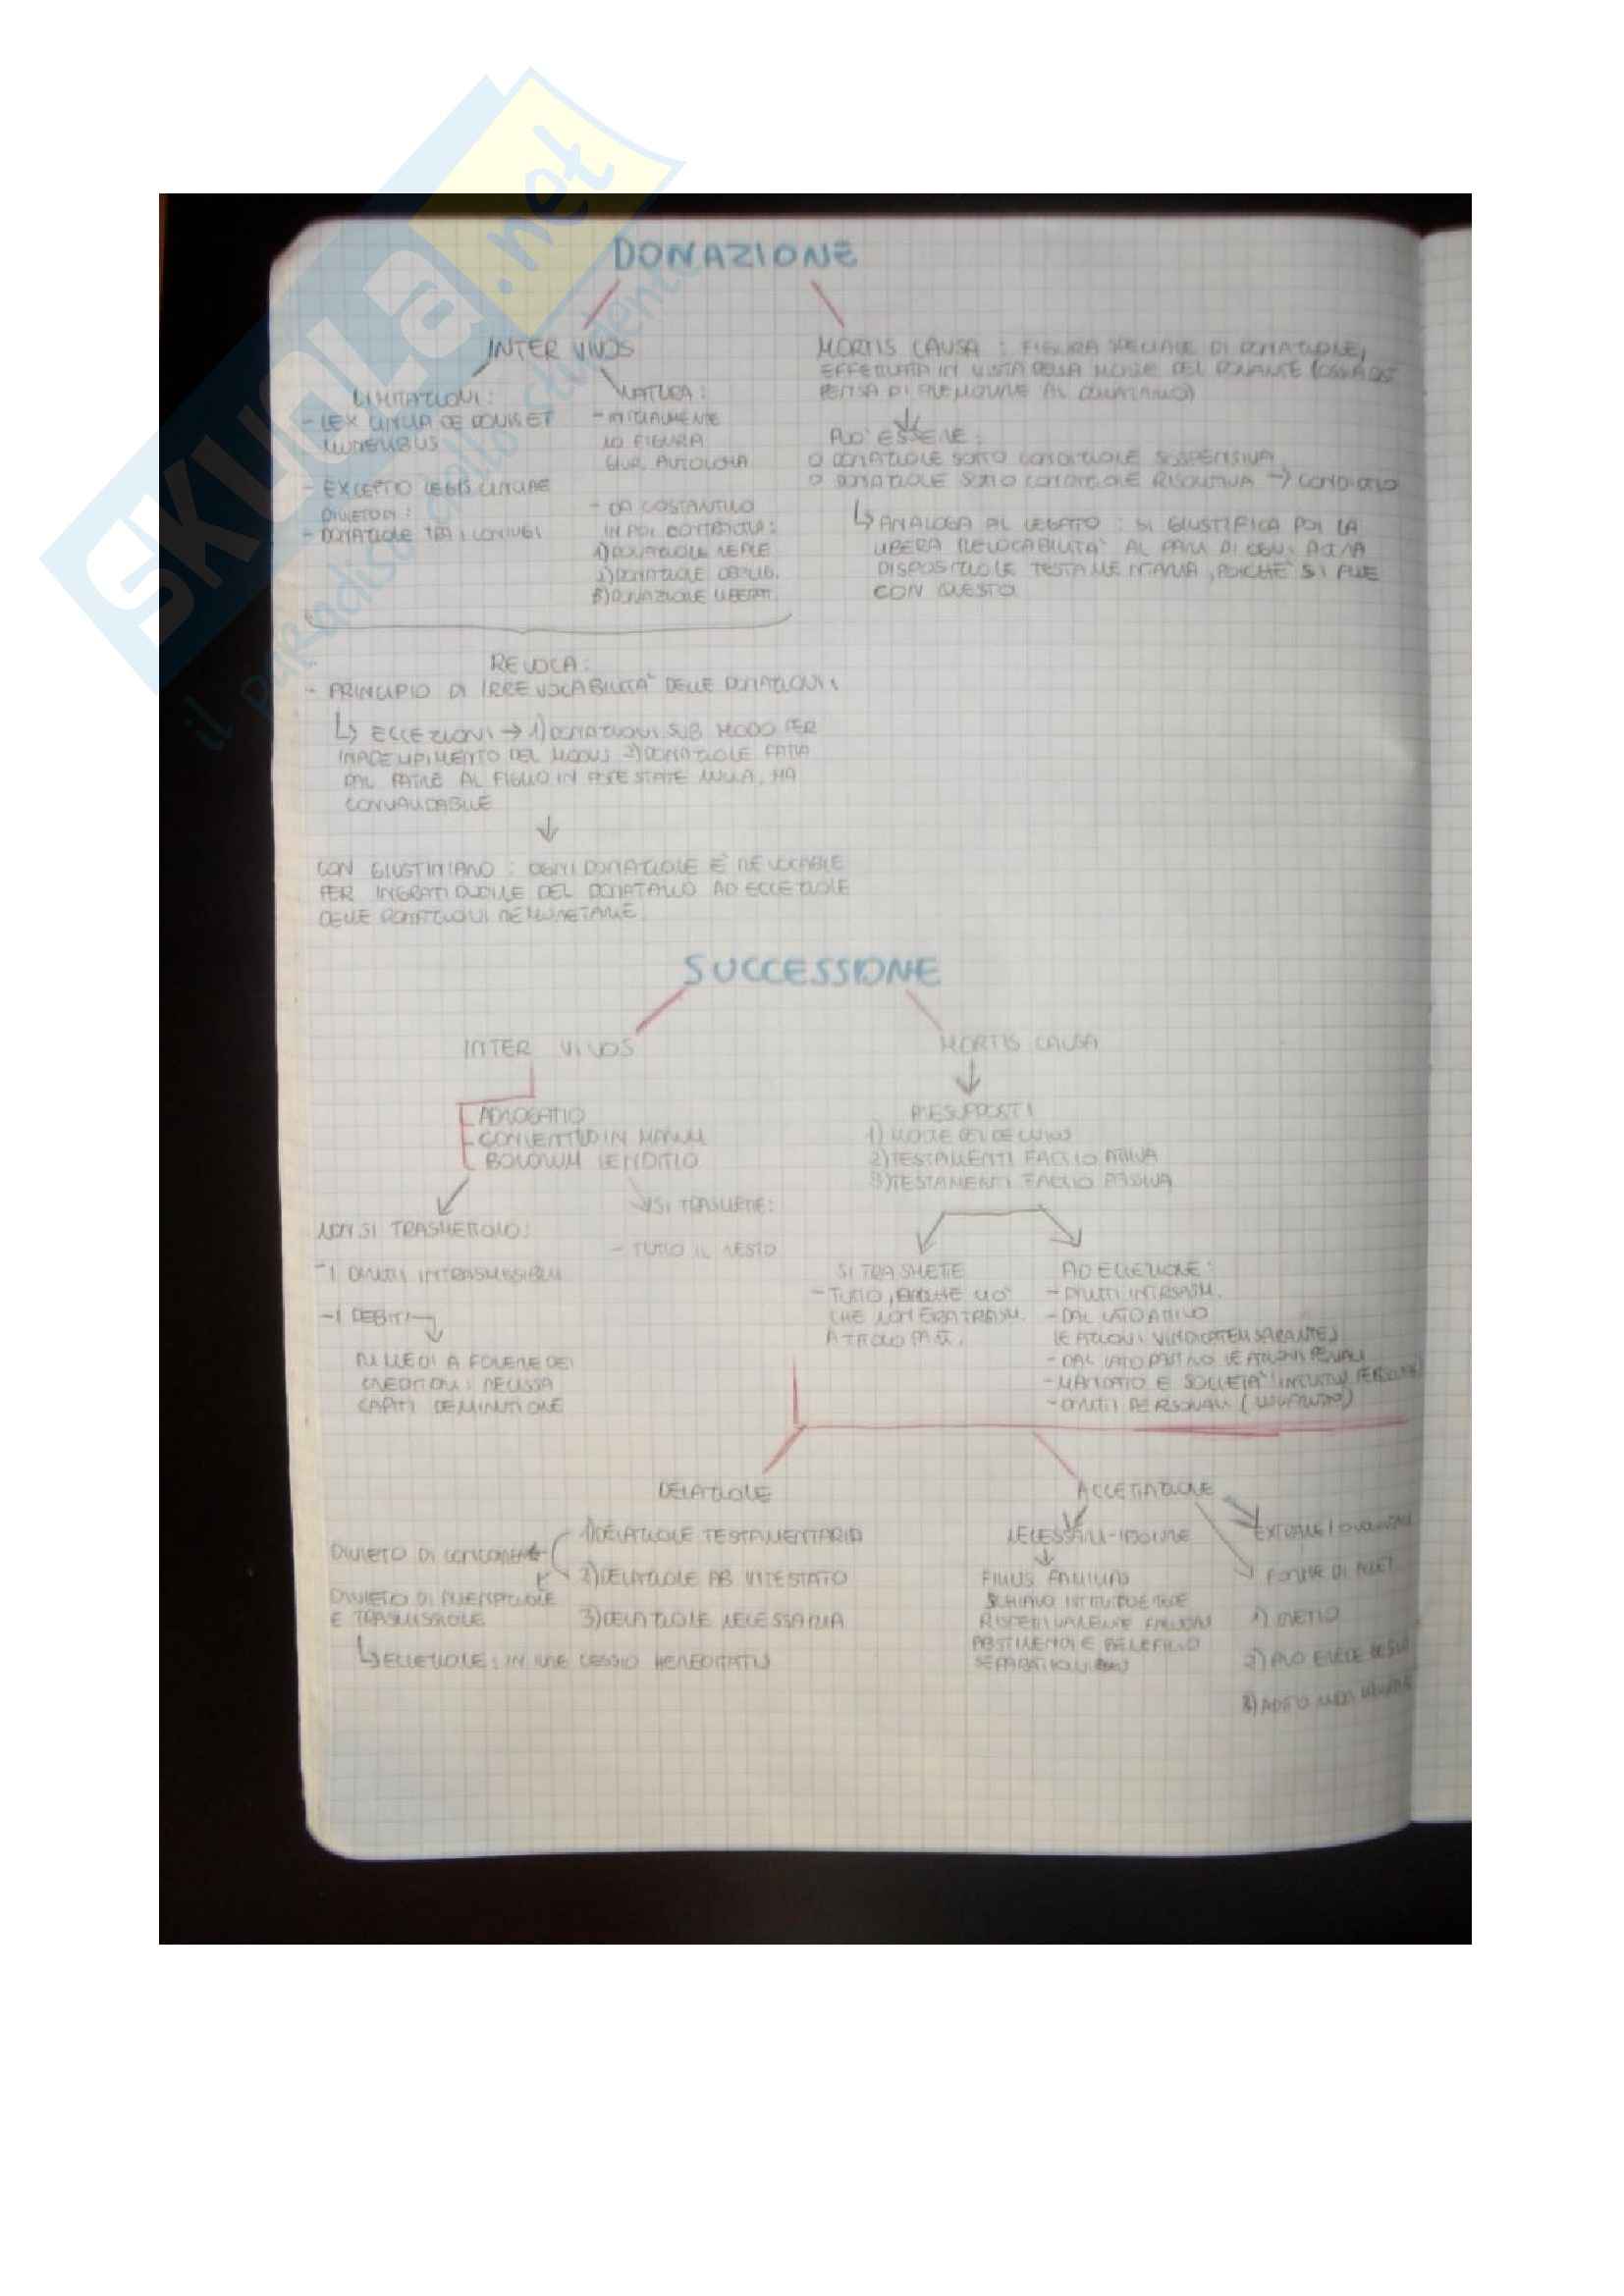 DONAZIONE
INTER VIVOS
LIMITAZIONI:
- LEX CINCIA DE DONIS ET
MUNERIBUS
- EXCEPTIO LEGIS CINCIAE
DIVIETO DI:
- DONAZIONE TRA I CONIUGI
NATURA:
- INIZIALMENTE
NO FIGURA
GIUR. AUTONOMA
- DA COSTANTINO
IN POI
1) DONAZIONE REALE
2) DONAZIONE OBBLIG.
3) DONAZIONE LIBERAT.
MORTIS CAUSA: FIGURA SPECIALE DI DONAZIONE,
EFFETTUATA IN VISTA DELLA MORTE DEL DONANTE
PENSA DI PREMORIRE AL DONATARIO)
PUO' ESSERE:
O DONAZIONE SOTTO CONDIZIONE SOSPENSIVA
O DONAZIONE SOTTO CONDIZIONE RISOLUTIVA → CONDICTIO
↳ ANALOGA AL LEGATO: SI GIUSTIFICA POI LA
LIBERA REVOCABILITA' AL PARI DI OGNI ALTRA
DISPOSIZIONE TESTAMENTARIA, POICHE' SI FUSE
CON QUESTO
REVOCA:
- PRINCIPIO DI IRREVOCABILITA' DELLE DONAZIONI:
↳ ECCEZIONI → 1) DONAZIONI SUB MODO PER
INADEMPIMENTO DEL MODUS 2) DONAZIONE FATTA
DAL PATRE AL FIGLIO IN POTESTATE NULLA, MA
CONVALIDABILE
CON GIUSTINIANO: OGNI DONAZIONE E' REVOCABILE
PER INGRATITUDINE DEL DONATARIO AD ECCEZIONE
DELLE DONAZIONI REMUNERATORIE
SUCCESSIONE
INTER VIVOS
ADROGATIO
CONVENTIO IN MANUM
BONORUM VENDITIO
NON SI TRASMETTONO:
- I DIRITTI INTRASMISSIBILI
- I DEBITI
RIMEDI A FAVORE DEI
CREDITORI: RESCISSA
CAPITI DEMINUTIONE
SI TRASMETTE:
- TUTTO IL RESTO
MORTIS CAUSA
PRESUPPOSTI
1) MORTE DEL DE CUIUS
2) TESTAMENTI FACTIO ATTIVA
3) TESTAMENTI FACTIO PASSIVA
SI TRASMETTE
- TUTTO, ANCHE CIO'
CHE NON ERA TRASM.
A TITOLO PART.
AD ECCEZIONE:
- DIRITTI INTRASM.
- DAL LATO ATTIVO
LE AZIONI VINDICTAM SPIRANTES
- DAL LATO PASSIVO LE AZIONI PENALI
- MANDATO E SOCIETA' INTUITUS PERSONAE
- DIRITTI PERSONALI (USUFRUTTO)
DELAZIONE
1) DELAZIONE TESTAMENTARIA
2) DELAZIONE AB INTESTATO
3) DELAZIONE NECESSARIA
DIVIETO DI
DIVIETO DI ALIENAZIONE
E TRASMISSIONE
↳ ECCEZIONE: IN IURE CESSIO HEREDITATIS
ACCETTAZIONE
NECESSARI
FILIUS FAMILIAS
SCHIAVO ISTITUITO EREDE
RISPETTIVAMENTE
ABSTINENDI E BENEFICIO
SEPARATIONIS
EXTRANEI O VOLONTARI
FORME DI ACCET.
1) CRETIO
2) PRO HEREDE GESTIO
3) ADITIO NUDA VOLUNTATE
SKUOLA.net
il paradiso dello studente